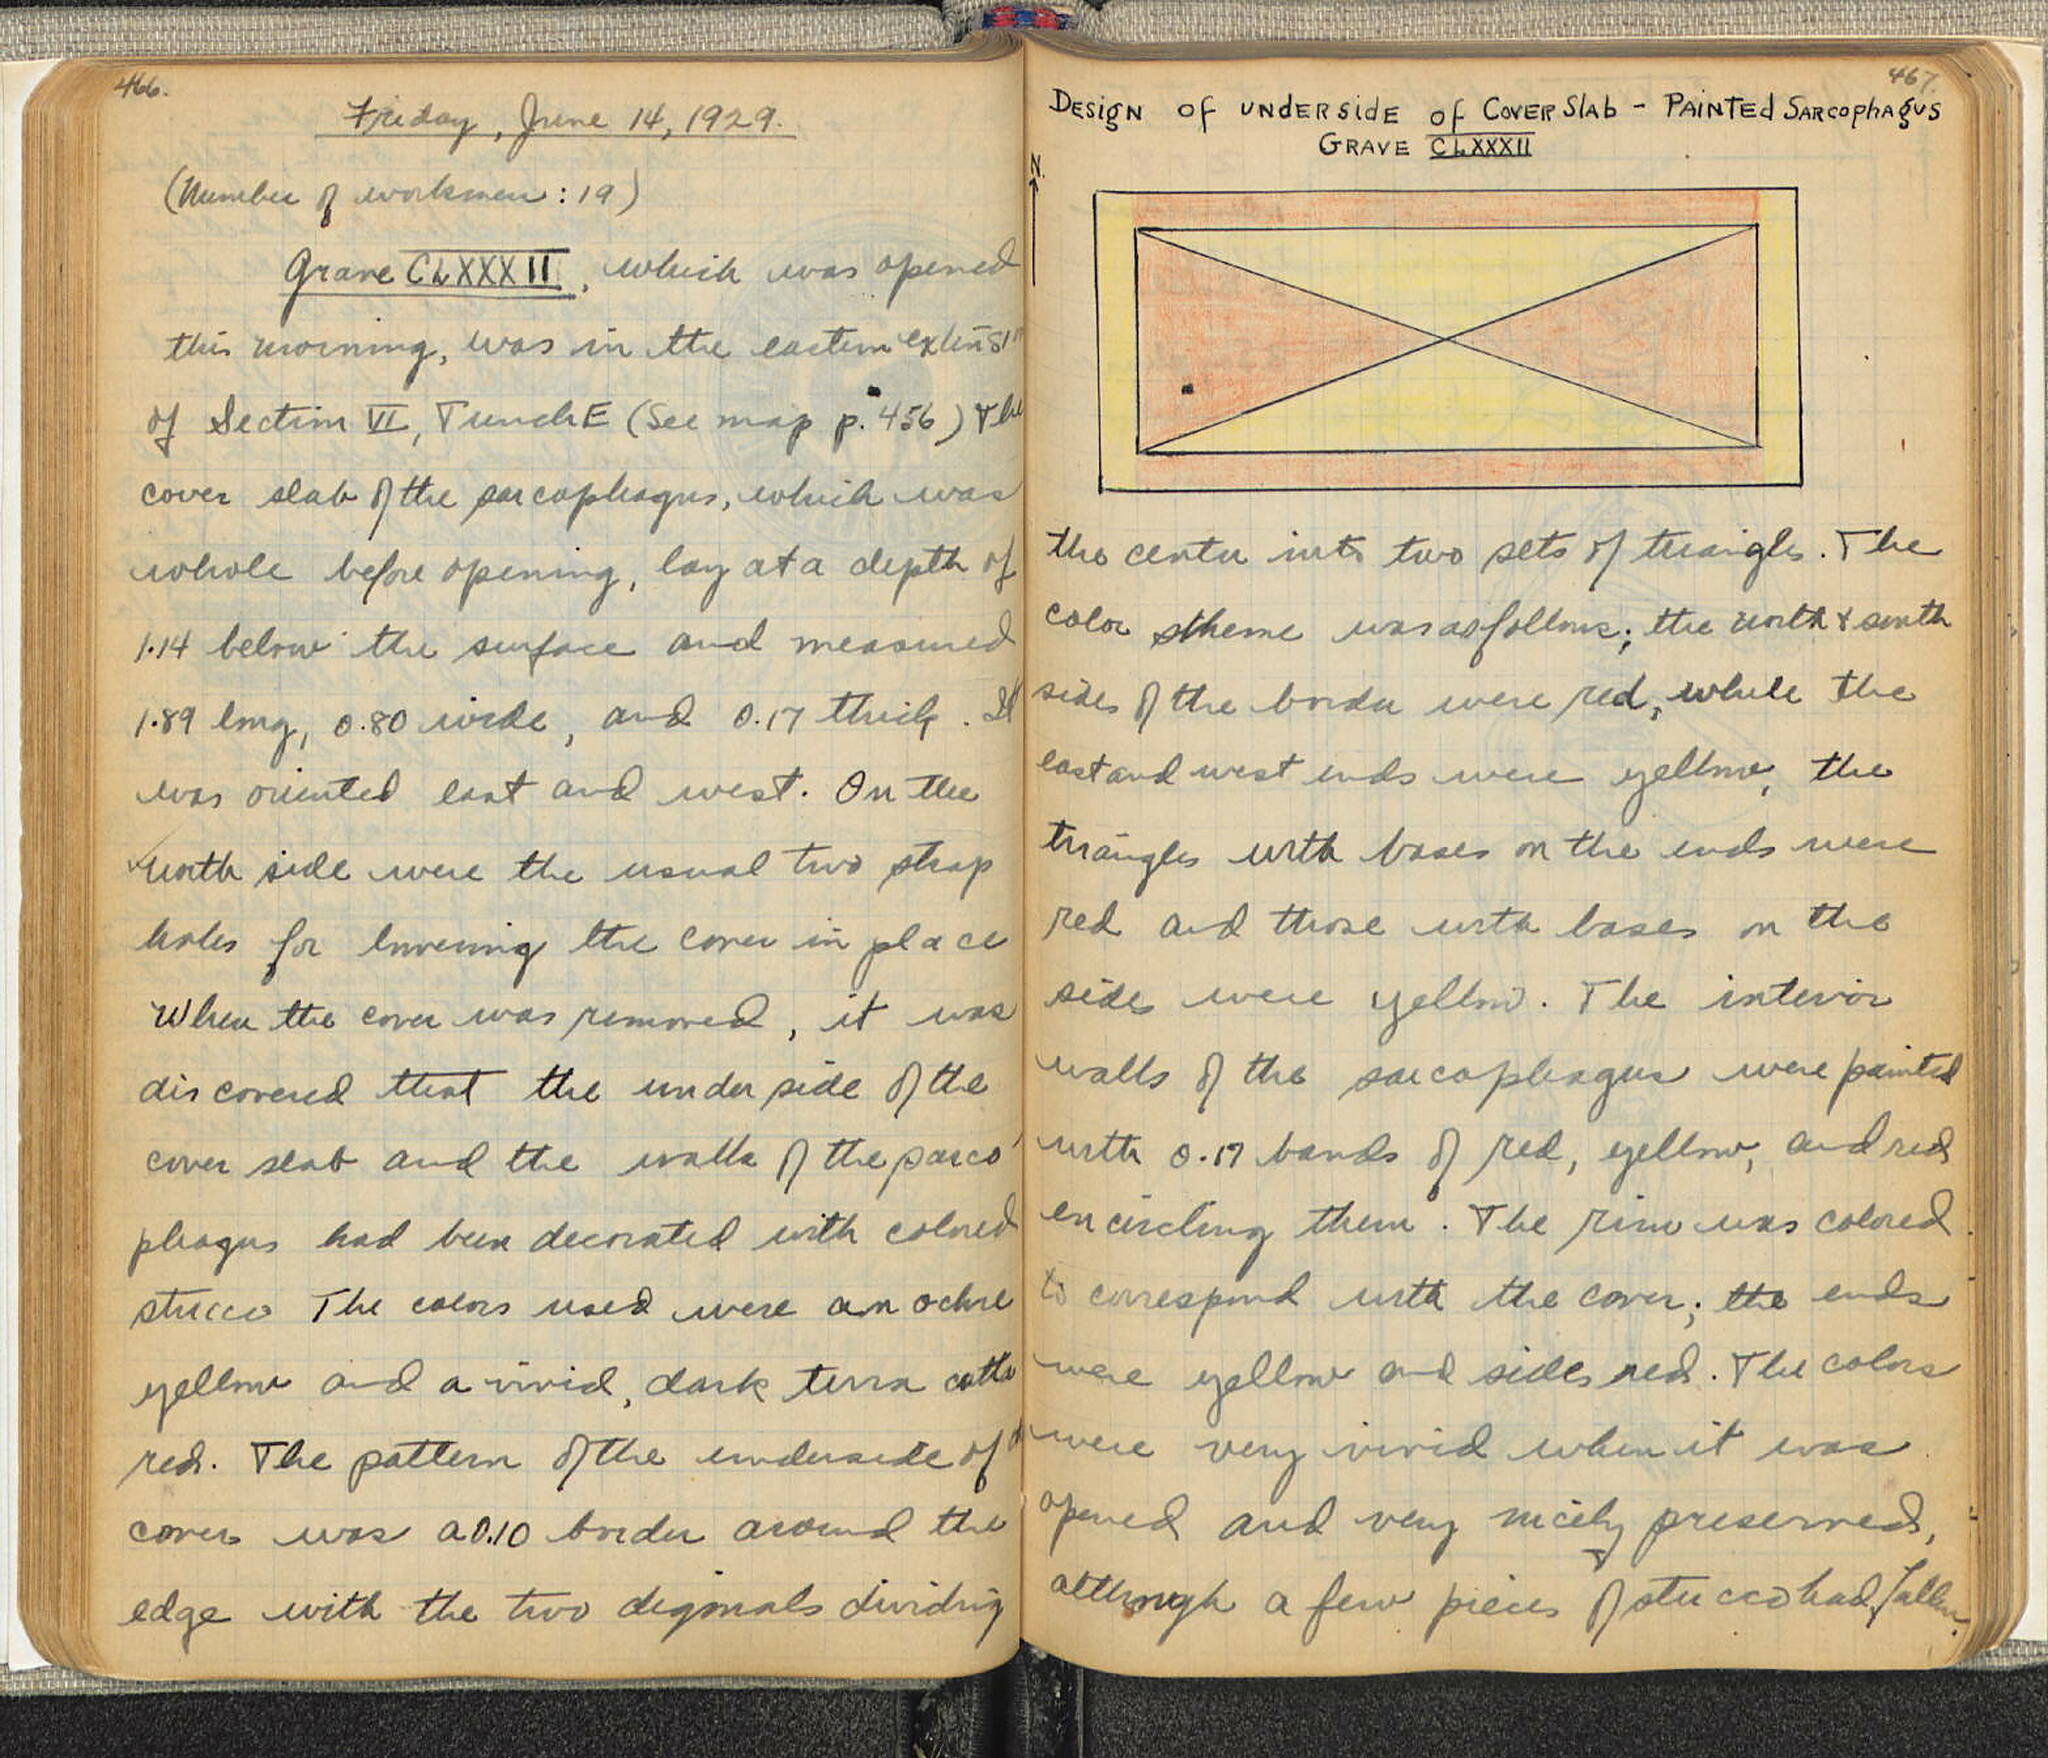 466.
Friday, June 14, 1929.
(Number of workmen: 19)
Grave CLXXXII, which was opened
this morning, was in the eastern extension
of Section VI, Trench E (See map p. 456) The
cover slab of the sarcophagus, which was
whole before opening, lay at a depth of
1.14 below the surface and measured
1.89 long, 0.80 wide, and 0.17 thick. It
was oriented east and west. On the
north side were the usual two strap
holes for lowering the cover in place
When the cover was removed, it was
discovered that the underside of the
cover slab and the walls of the sarco
phagus had been decorated with colored
stucco The colors used were an ochre
yellow and a vivid, dark terra cotta
red. The pattern of the underside of
cover was a 0.10 border around the
edge with the two digonals dividing
467.
DESIGN OF UNDERSIDE OF COVER SLAB - PAINTED SARCOPHAGUS
GRAVE CLXXXII
N.
the center into two sets of triangles. The
color stheme was as follows; the north & south
sides of the border were red, while the
east and west ends were yellow, the
triangles with bases on the ends were
red and those with bases on the
sides were yellow. The interior
walls of the sarcophagus were painted
with 0.17 bands of red, yellow, and red
encircling them. The rim was colored
to correspond with the cover; the ends
were yellow and sides red. The colors
were very vivid when it was
opened and very nicely preserved,
although a few pieces of stucco had fallen.